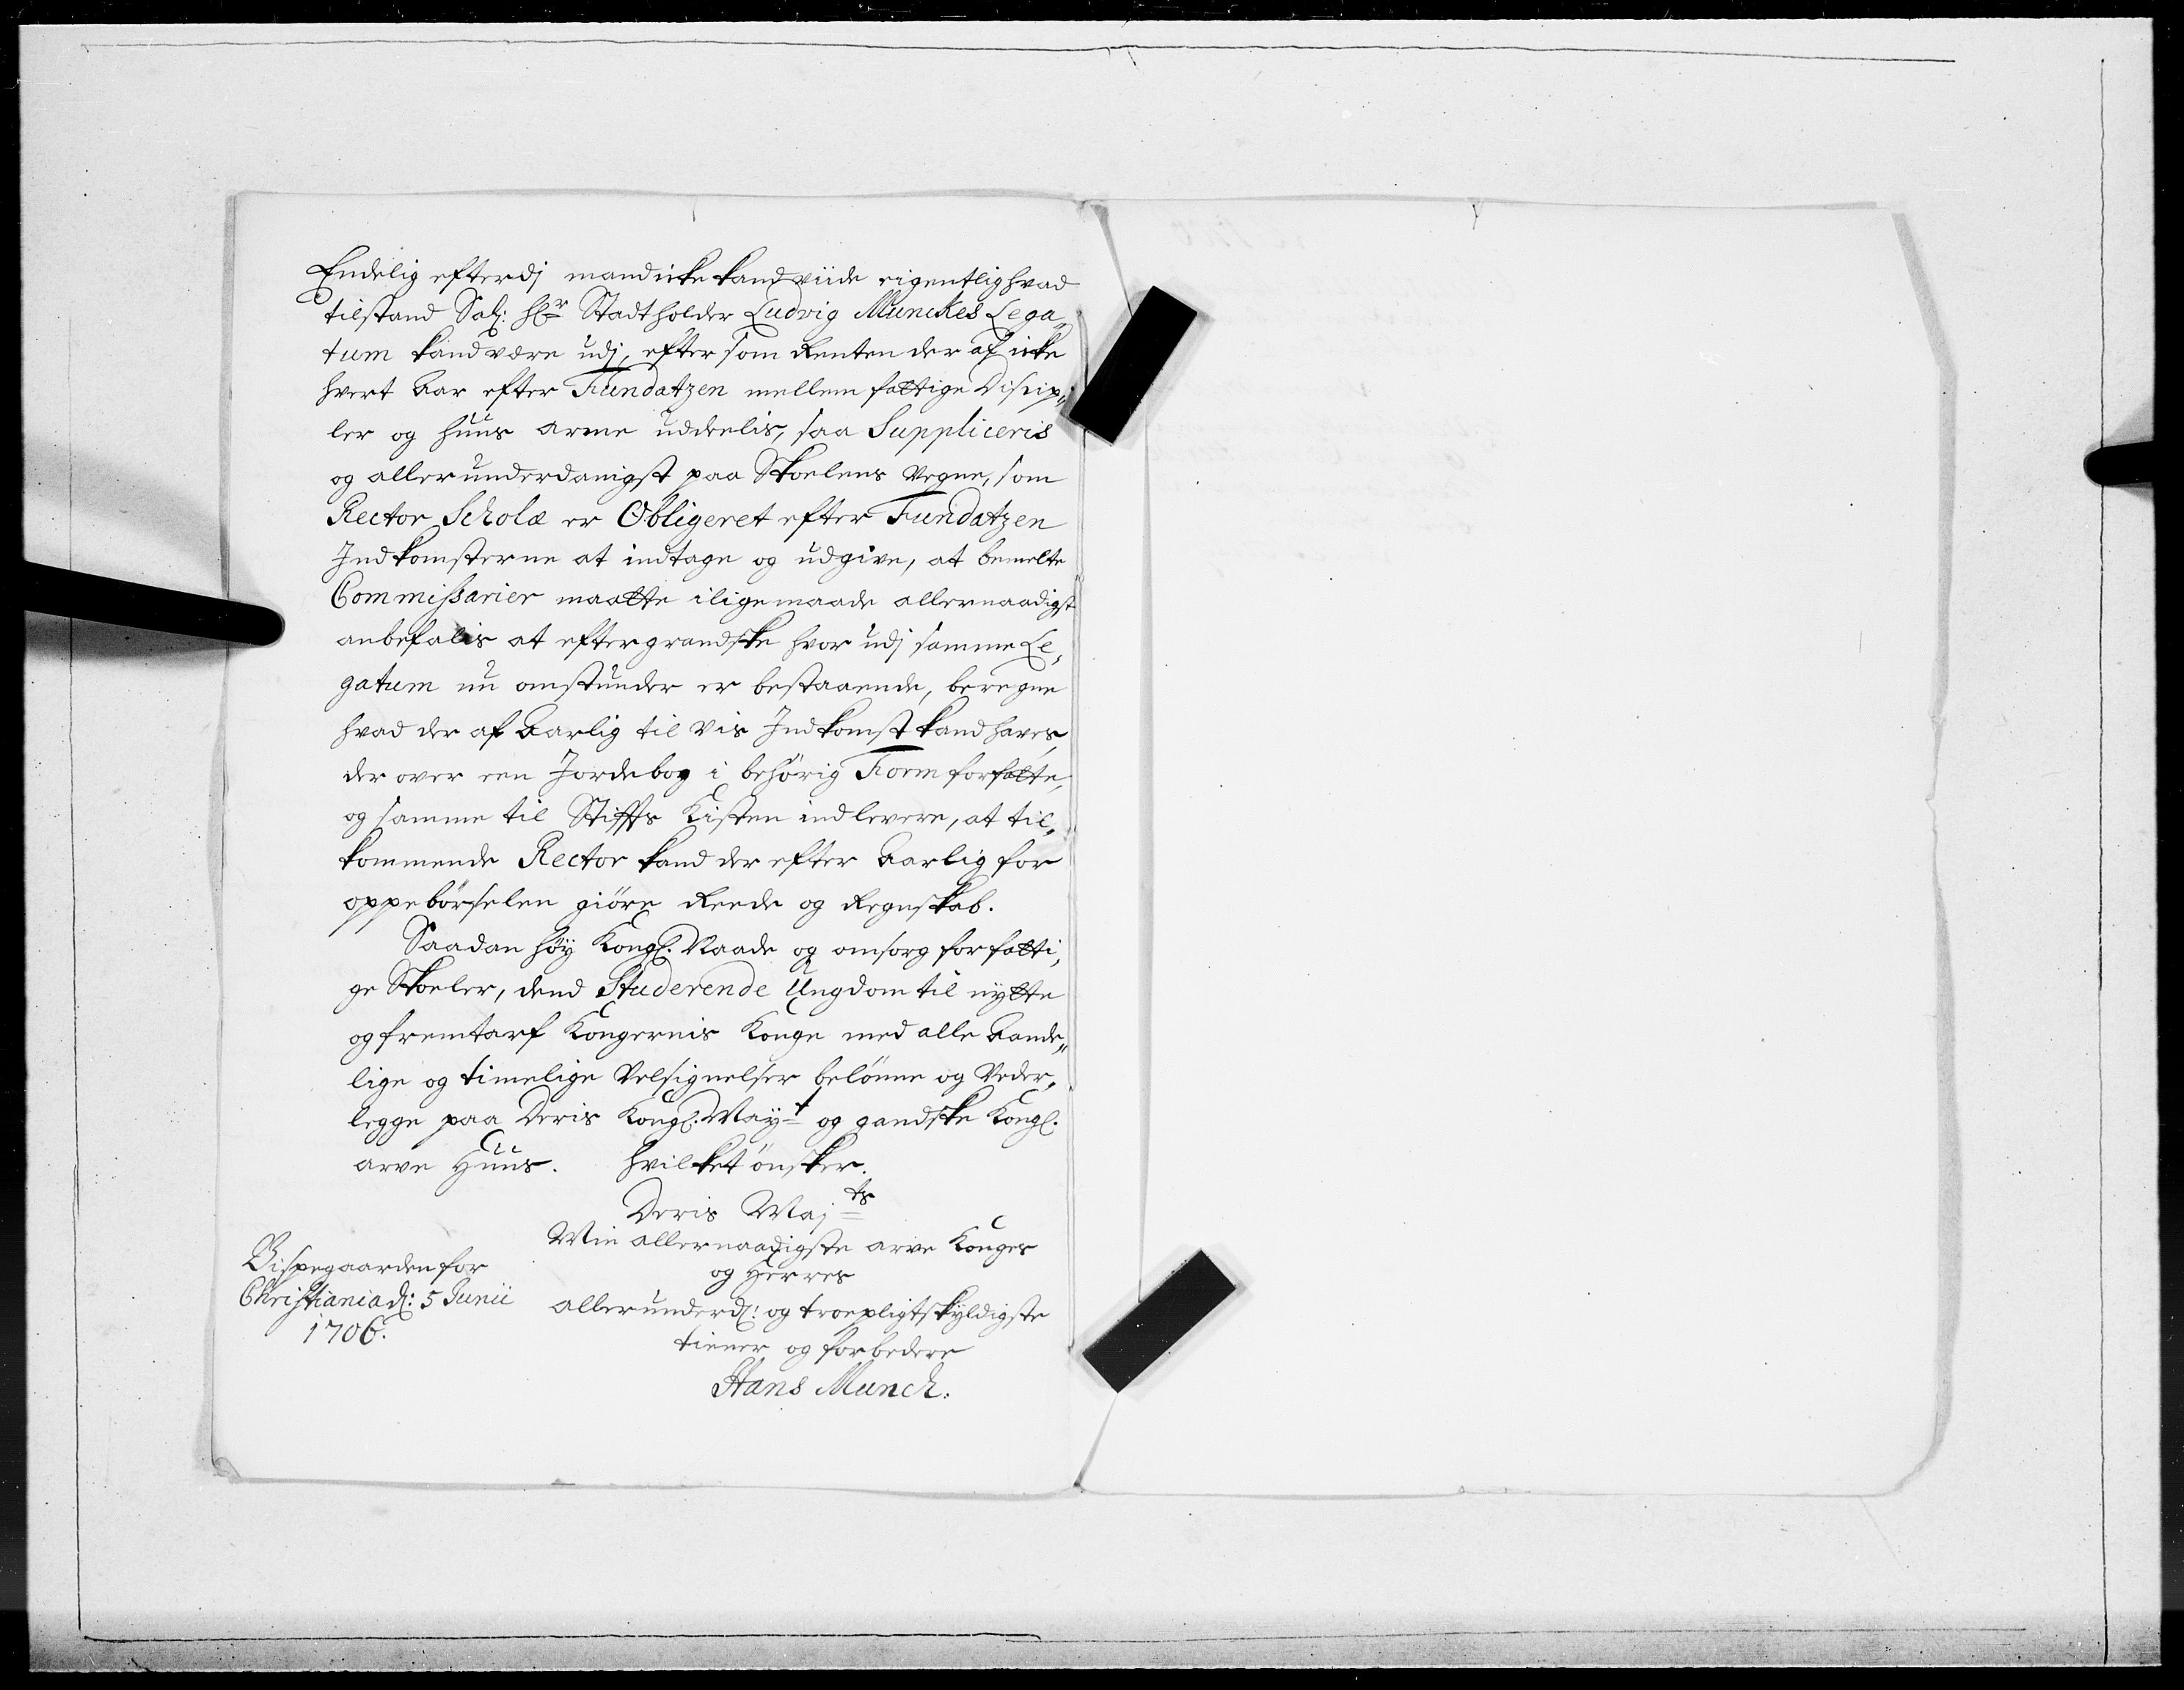 Endelig efterdj mand icke kand viide eigentlig hvad
tilstand Sal: Hr Stadtholder Ludvig Munckes Lega„
tum kand være udj, efter som Renten der af icke
hvert Aar efter Fundatzen mellem fattige Discip„
ler og huus arme uddeelis, saa Suppliceris
og allerunderdanigst paa Skoelens Vegne, som
Rector Scholæ er Obligeret efter Fundatzen
Indkomsterne at indtage og udgive, at bemelte
Commißarier maatte iligemaade allernaadigst
anbefalis at eftergrandske hvor udj samme Le„
gatum nu omstunder er bestaaende, beregne
hvad der af Aarlig til vis Indkomst kand haves,
der over een Jordebog i behörig Form forfatte,
og samme til Stiffts Kisten indlevere, at til„
kommende Rector kand der efter Aarlig for
oppebörselen giöre Reede og Regnskab.
Saadan höy Kongl. Naade og omsorg for fatti„
ge Skoeler, dend Studerende Ungdom til nytte
og fremtarf Kongernis Konge med alle Aande„
lige og timelige Velsignelser belönne og Veder„
legge paa Deris Kongl. Mayt og gandske Kongl.
arve Huus. hvilket önsker.
Deris Majts
Min allernaadigste arve Konges
og Herres
Bispegaarden for
Christiania d: 5 Junii
1706.
allerunderd: og troepligtskyldigste
tiener og forbedere
Hans Munch.